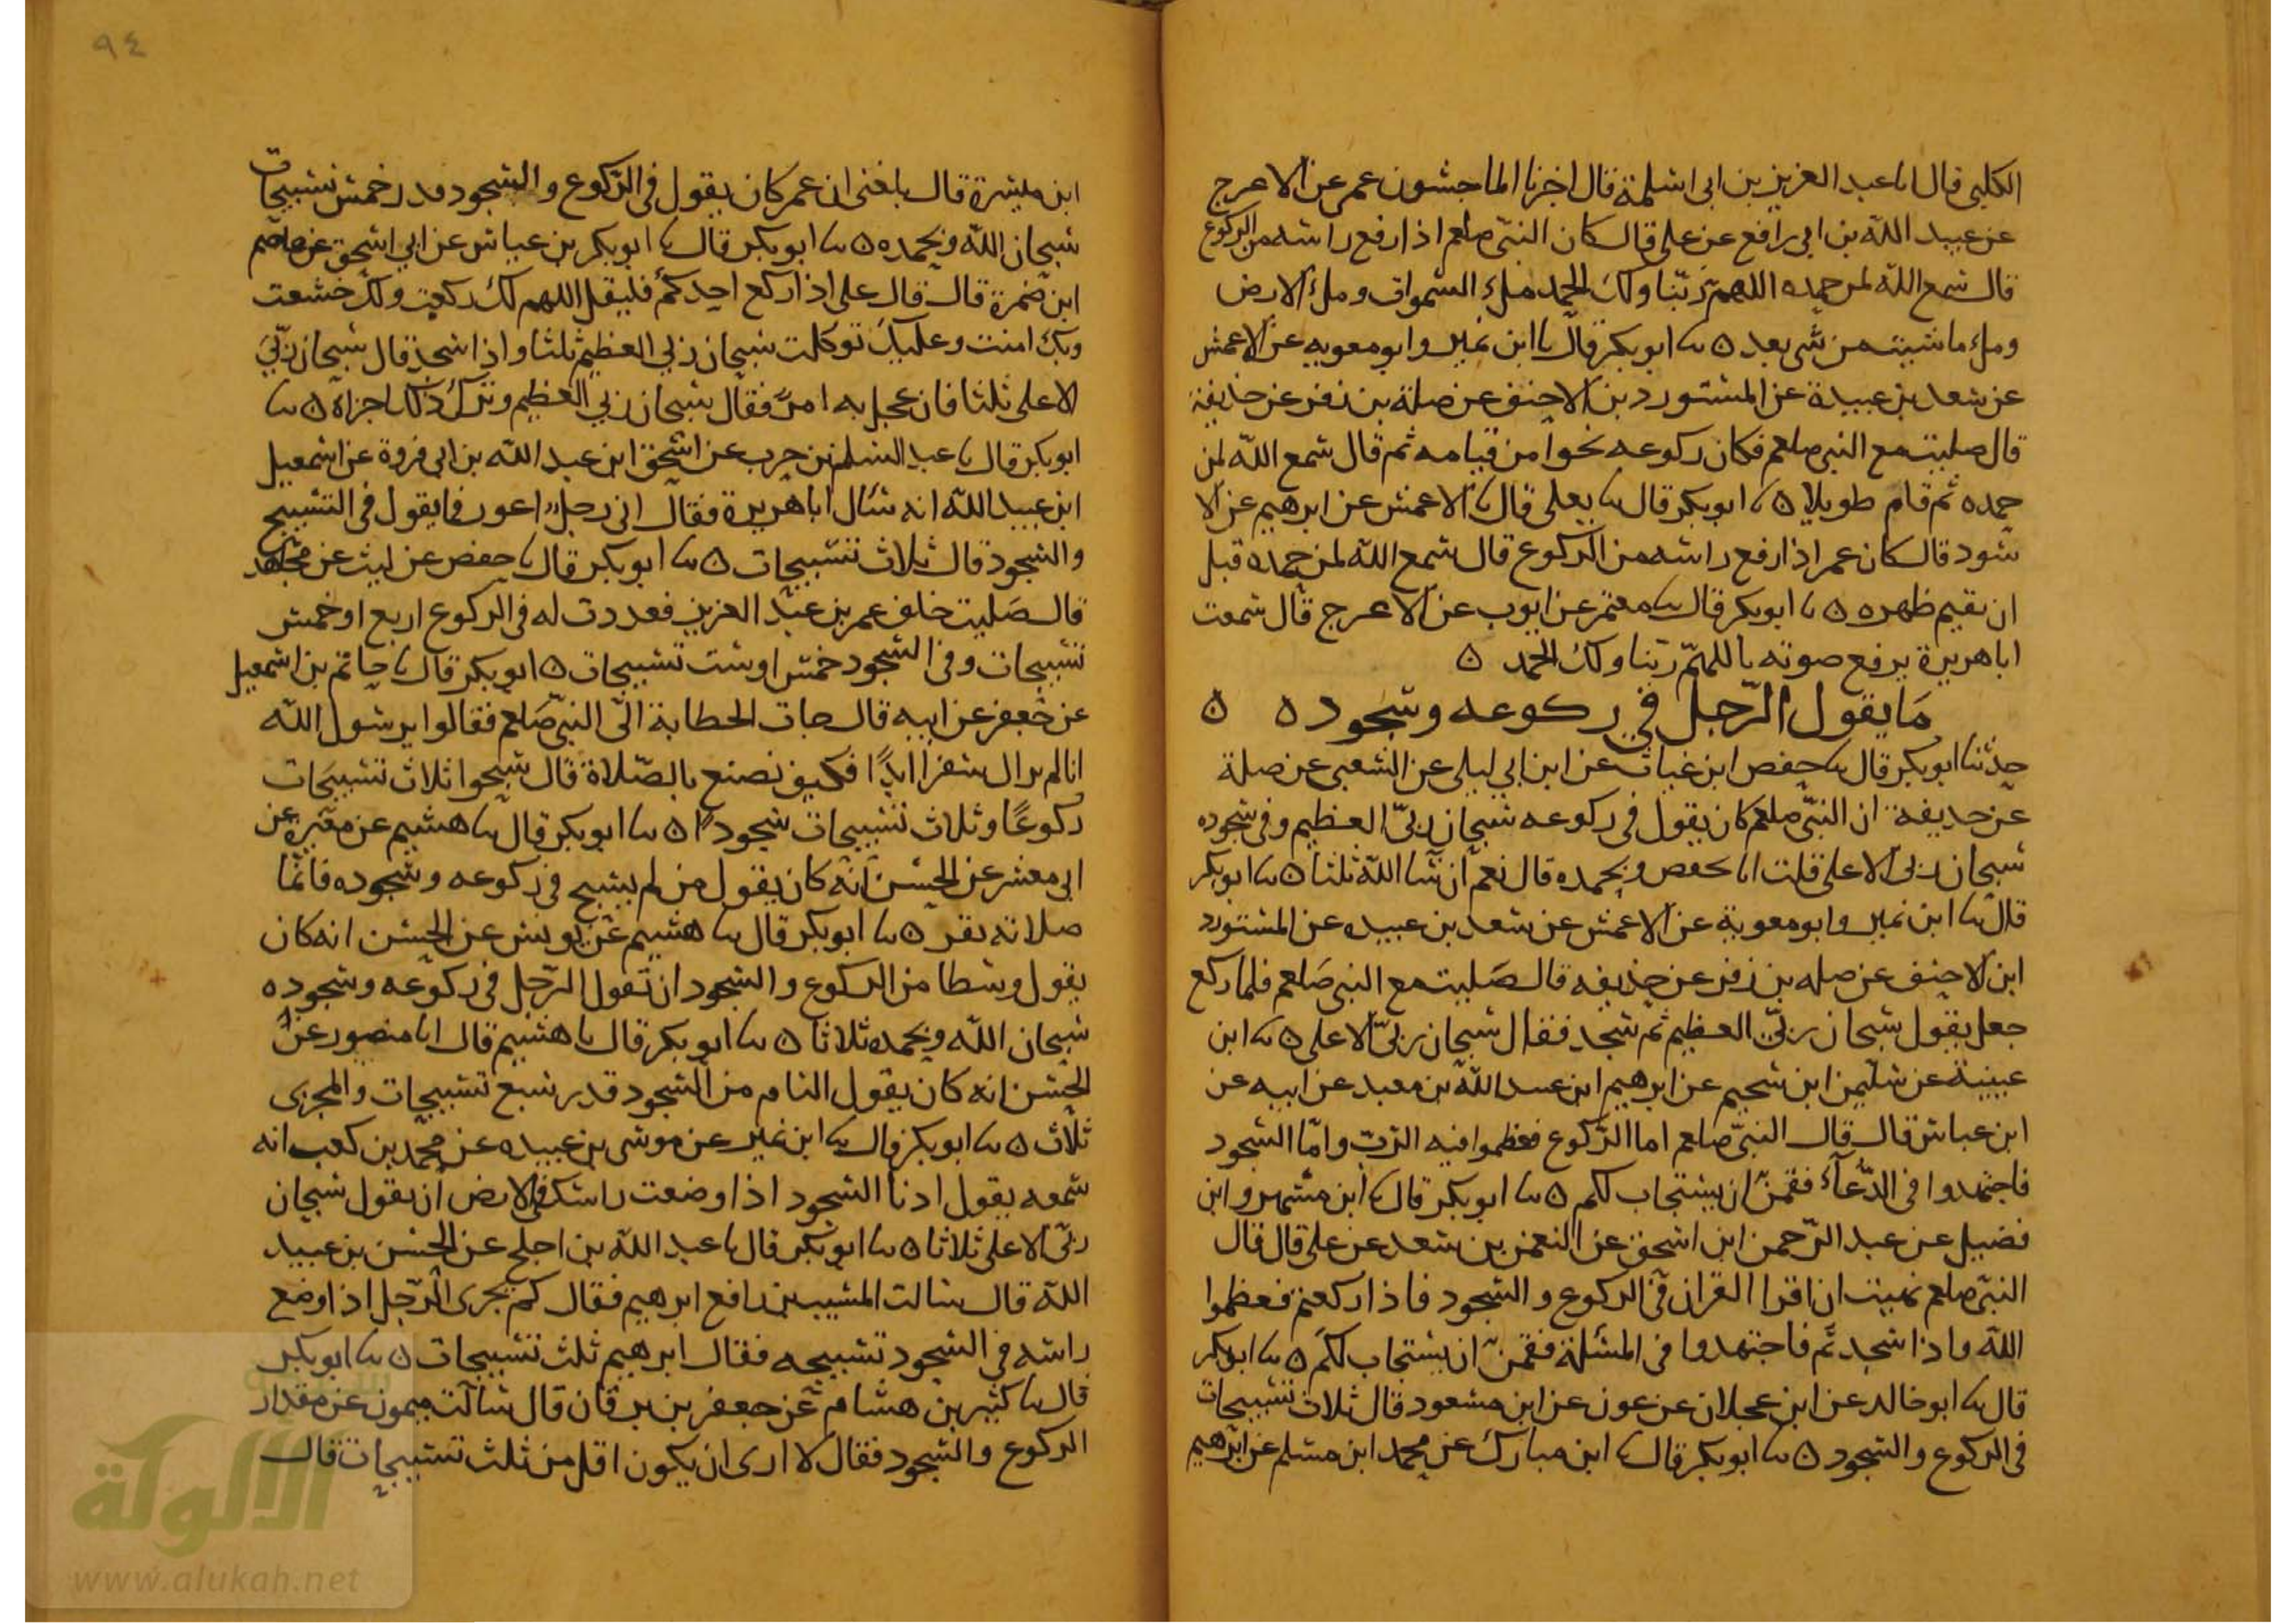 الكلبى قال نا عبد العزيز بن ابى سلمة قال اخبرنا الماجشون عمر عن الاعرج
عن عبيد الله بن ابى رافع عن على قال كان النبى صلعم اذا رفع راسه من الركوع
قال سمع الله لمن حمده اللهم ربنا ولك الحمد ملء السموات وملء الارض
وملء ما شيت من شى بعد ٥ نا ابو بكر قال نا ابن نمير وابو معويه عن الاعمش
عن سعد بن عبيدة عن المستورد بن الاحنف عن صلة بن زفر عن حذيفة
قال صليت مع النبى صلعم فكان ركوعه نحوا من قيامه ثم قال سمع الله لمن
حمده ثم قام طويلا ٥ نا ابو بكر قال نا يعلى قال نا الاعمش عن ابرهيم عن الا
سود قال كان عمر اذا رفع راسه من الركوع قال سمع الله لمن حمده قبل
ان يقيم ظهره ٥ نا ابو بكر قال نا معتمر عن ايوب عن الاعرج قال سمعت
ابا هريرة يرفع صوته باللهم ربنا ولك الحمد ٥
ما يقول الرجل فى ركوعه وسجوده ٥ ٥
حدثنا ابو بكر قال نا حفص ابن غياث عن ابن ابى ليلى عن الشعبى عن صلة
عن حذيفة ان النبى صلعم كان يقول فى ركوعه سبحان ربى العظيم وفى سجوده
سبحان ربى الاعلى قلت انا لحفص وبحمده قال نعم ان شا الله ثلثا ٥ نا ابو بكر
قال نا ابن نمير وابو معوية عن الاعمش عن سعد بن عبيده عن المستورد
ابن الاحنف عن صله بن زفر عن حذيفه قال صليت مع النبى صلعم فلما ركع
جعل يقول سبحان ربى العظيم ثم سجد فقال سبحان ربى الاعلى ٥ نا ابن
عيينة عن سليمن ابن سحيم عن ابرهيم ابن عبد الله بن معبد عن ابيه عن
ابن عباس قال قال النبى صلعم اما الركوع فعظموا فيه الرب واما السجود
فاجتهدوا فى الدعاء فقمن ان يستجاب لكم ٥ نا ابو بكر قال نا ابن مسهر وابن
فضيل عن عبد الرحمن ابن اسحق عن النعمن بن سعد عن على قال قال
النبى صلعم نهيت ان اقرا القران فى الركوع والسجود فاذا ركعتم فعظموا
الله واذا سجدتم فاجتهدوا فى المسئلة فقمن ان يستجاب لكم ٥ نا ابو بكر
قال نا ابو خالد عن ابن عجلان عن عون عن ابن مسعود قال ثلاث تسبيحات
فى الركوع والسجود ٥ نا ابو بكر قال نا ابن مبارك عن محمد ابن مسلم عن ابرهيم
٩٤
ابن ميسرة قال بلغنى ان عمر كان يقول فى الركوع والسجود قدر خمس تسبيحات
سبحان الله وبحمده ٥ نا ابو بكر قال نا ابو بكر بن عياش عن ابى اسحق عن عاصم
ابن ضمرة قال قال على اذا ركع احدكم فليقل اللهم لك ركعت ولك خشعت
وبك امنت وعليك توكلت سبحان ربى العظيم ثلثا واذا سجد قال سبحان ربى
الاعلى ثلثا فان عجل به امر فقال سبحان ربى العظيم وترك ذلك اجزاه ٥ نا
ابو بكر قال نا عبد السلم بن حرب عن اسحق ابن عبد الله بن ابى فروة عن اسمعيل
ابن عبيد الله انه سال ابا هريرة فقال انى رجل اعور فما يقول فى التسبيح
والسجود قال ثلاث تسبيحات ٥ نا ابو بكر قال نا حفص عن ليث عن مجاهد
قال صليت خلف عمر بن عبد العزيز فعددت له فى الركوع اربع او خمس
تسبيحات وفى السجود خمس او ست تسبيحات ٥ ابو بكر قال نا حاتم بن اسمعيل
عن جعفر عن ابيه قال جات الحطابة الى النبى صلعم فقالوا يرسول الله
انا لم نزال سفرا ابدا فكيف نصنع بالصلاة قال سبحوا ثلاث تسبيحات
ركوعا وثلاث تسبيحات سجودا ٥ نا ابو بكر قال نا هشيم عن مغيرة عن
ابى معشر عن الحسن انه كان يقول من لم يسبح فى ركوعه وسجوده فانما
صلاته نقر ٥ نا ابو بكر قال نا هشيم عن يونس عن الحسن انه كان
يقول وسطا من الركوع والسجود ان يقول الرجل فى ركوعه وسجوده
سبحان الله وبحمده ثلاثا ٥ نا ابو بكر قال نا هشيم قال انا منصور عن
الحسن انه كان يقول التام من السجود قدر سبع تسبيحات والمجزى
ثلاث ٥ نا ابو بكر قال نا ابن نمير عن موسى بن عبيده عن محمد بن كعب انه
سمعه يقول ادنا السجود اذا وضعت راسك فى الارض ان يقول سبحان
ربى الاعلى ثلاثا ٥ نا ابو بكر قال نا عبد الله بن اجلح عن الحسن بن عبيد
الله قال سالت المسيب بن رافع ابرهيم فقال كم يجزى الرجل اذا وضع
راسه فى السجود تسبيحه فقال ابرهيم ثلث تسبيحات ٥ نا ابو بكر
قال نا كثير بن هشام عن جعفر بن برقان قال سالت ميمون عن مقدار
الركوع والسجود فقال لا ارى ان يكون اقل من ثلث تسبيحات قال
شبكة
الألوكة
www.alukah.net